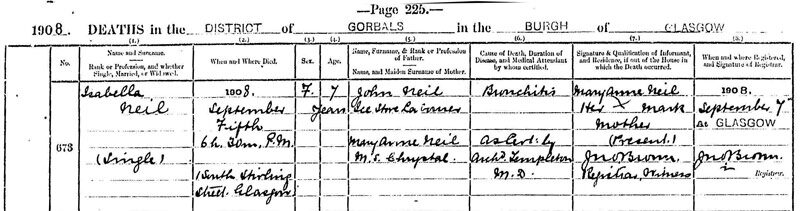 —Page 225.—
1908. DEATHS in the DISTRICT of GORBALS in the BURGH of GLASGOW
(1.) (2.) (3.) (4.) (5.) (6.) (7.) (8.)
No.
Name and Surname.
Rank or Profession, and whether
Single, Married, or Widowed.
When and Where Died.
Sex.
Age.
Name, Surname, & Rank or Profession
of Father.
Name, and Maiden Surname of Mother.
Cause of Death, Duration of
Disease, and Medical Attendant
by whom certified.
Signature & Qualification of Informant,
and Residence, if out of the House in
which the Death occurred.
When and where Registered,
and Signature of Registrar.
673
Isabella
Neil
(Single)
1908.
September
Fifth
6h. 30m. P.M.
South Stirling
Street. Glasgow
F.
7
Years
John Neil
Mary Anne Neil
M.S. Chrystal.
Bronchitis
As Cert. by
Archd. Templeton
M.D.
Mary Anne Neil
Her X Mark
Mother
(Present.)
Jno Brown.
Registrar, Witness
1908.
September 7th
At GLASGOW
Jno Brown.
Registrar.